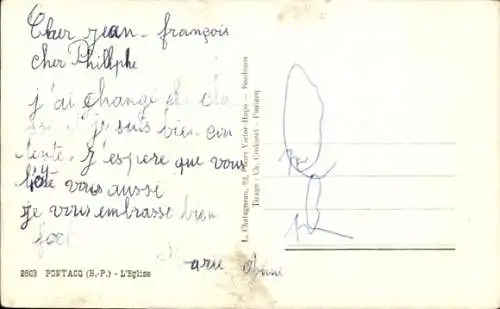 Cher jean-françois
cher Phillphe
j'ai changé de cla
sse et je suis bien con
tente. j'espere que vous
l'ête vous aussi
je vous embrasse bien
fort
L. Chatagneau, 22, Cours Victor-Hugo - Bordeaux
Tirage : Ch. - Pontacq
2603 PONTACQ (B.-P.) - L'Eglise